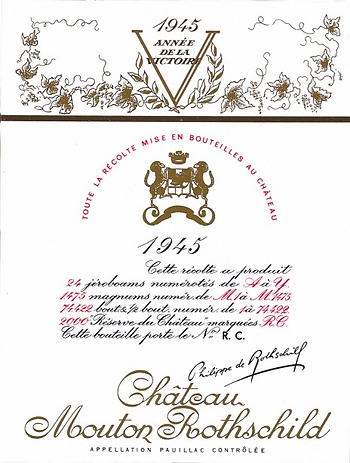 1945
V
ANNÉE
DE LA
VICTOIRE
TOUTE LA RÉCOLTE MISE EN BOUTEILLES AU CHÂTEAU
1945
Cette récolte a produit
24 jéroboams numérotés de A à Y
1475 magnums numér. de M1 à M1475
74422 bout. & 1/2 bout. numér. de 1 à 74.422
2000 Réserve du Château marquées R.C.
Cette bouteille porte le No R.C.
Philippe de Rothschild
Château
Mouton Rothschild
APPELLATION PAUILLAC CONTRÔLÉE